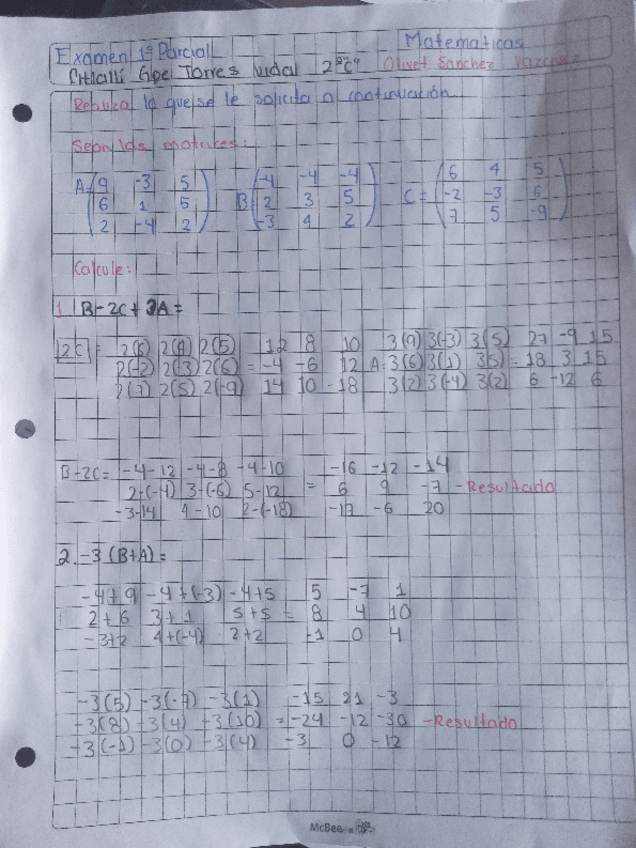 Examen 1º Parcial Matematicas
Torres 2º "C" Olivet Sanchez Vazquez
Realiza lo que se le solicita a continuación
matrices:
A=(9 -3 5) B(-4 -4 -4) C=(6 4 5)
(6 1 5) (2 3 5) (-2 -3 6)
(2 -4 2) (-3 4 2) (7 5 -9)
Calcule:
1 B-2C+3A=
2C = 2(6) 2(4) 2(5) 12 8 10 3(9) 3(-3) 3(5) 27 -9 15
2(-2) 2(-3) 2(6) = -4 -6 12 A= 3(6) 3(1) 3(5) = 18 3 15
2(7) 2(5) 2(-9) 14 10 -18 3(2) 3(-4) 3(2) 6 -12 6
B-2C= -4-12 -4-8 -4-10 -16 -12 -14
2-(-4) 3-(-6) 5-12 = 6 9 -7 -Resultado
-3-14 4-10 2-(-18) -17 -6 20
2.-3(B+A)=
-4+9 -4+(-3) -4+5 5 -7 1
2+6 3+1 5+5 = 8 4 10
-3+2 4+(-4) 2+2 -1 0 4
-3(5) -3(-7) -3(1) -15 21 -3
-3(8) -3(4) -3(10) = -24 -12 -30 -Resultado
-3(-1) -3(0) -3(4) -3 0 -12
McBee